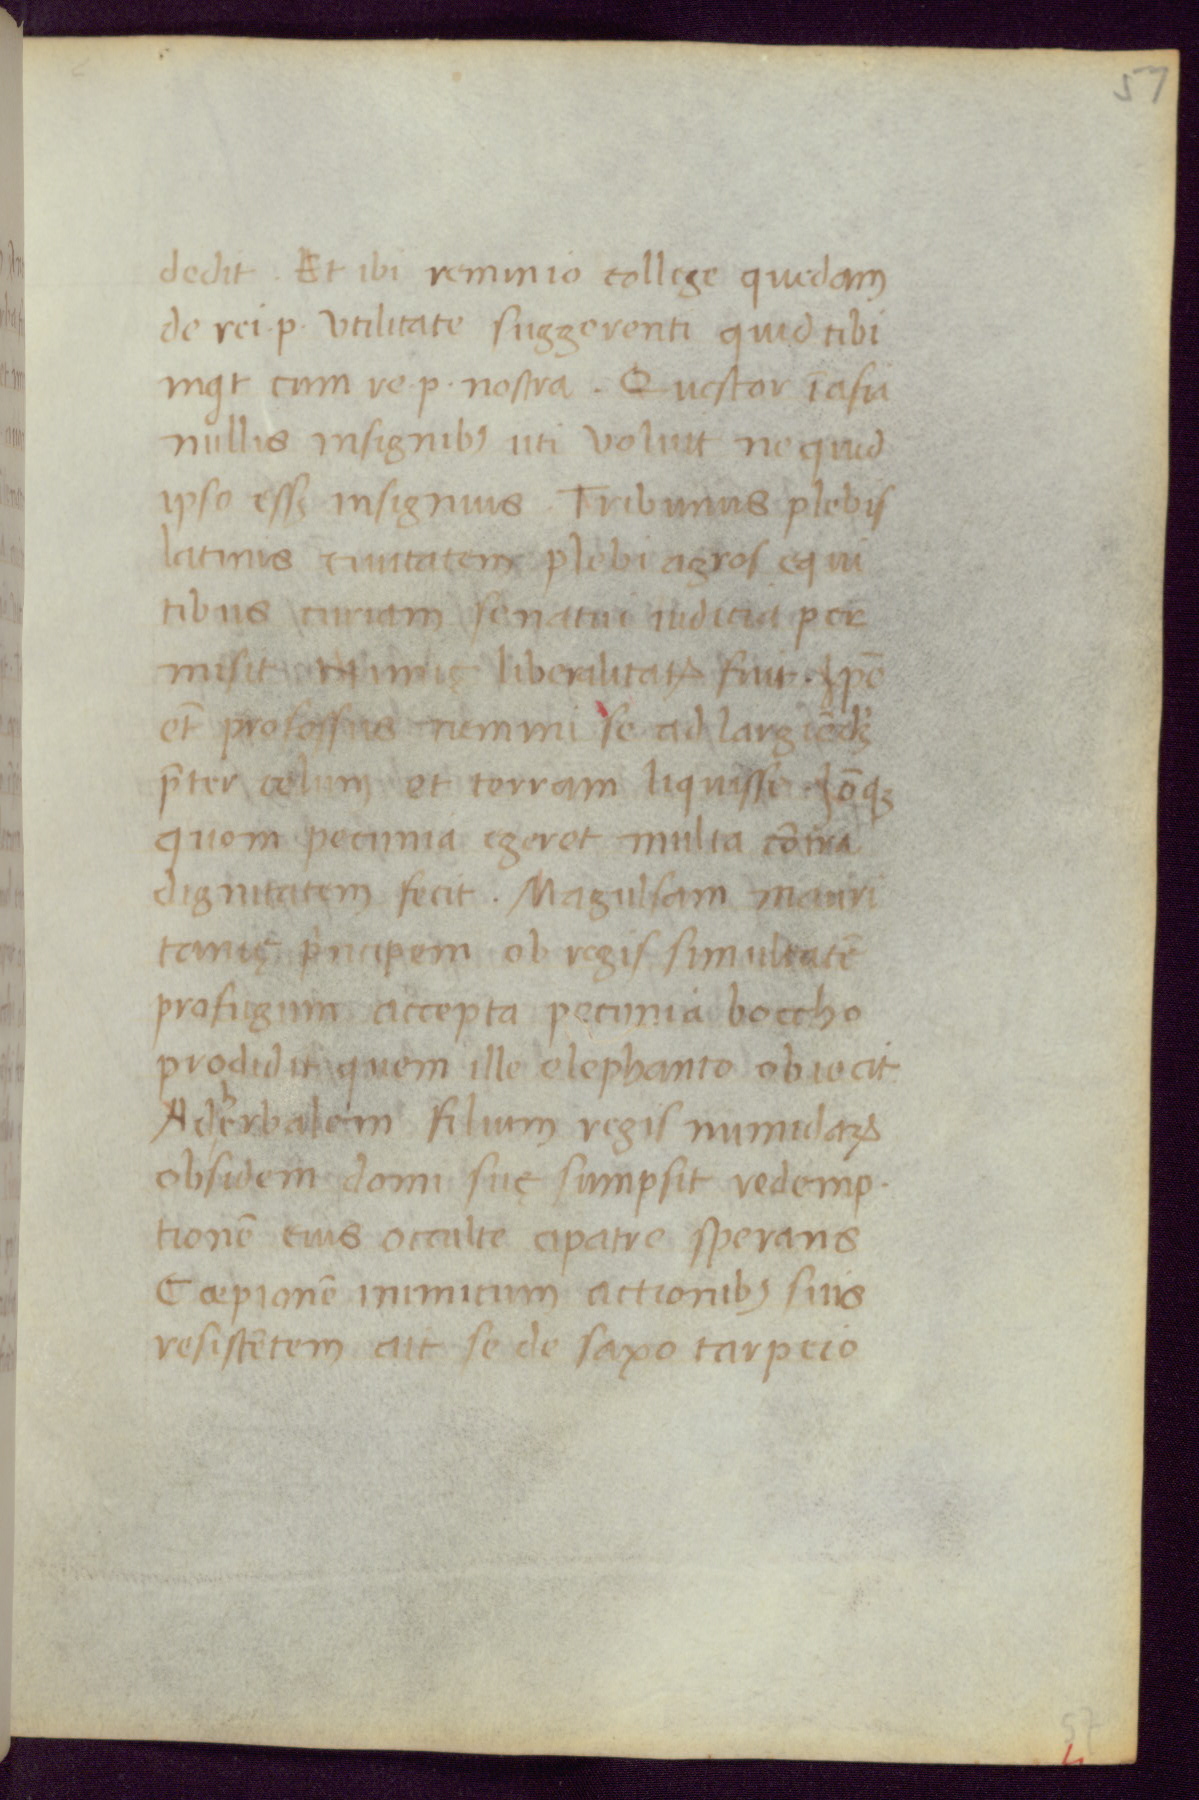 57
dedit . Et ibi remmio collegę quedam
de rei·p· vtilitate suggerenti quid tibi
inqt cum re·p· nostra . Questor ī asia
nullis insignibꝫ uti voluit ne quid
ipso essę insignius . Tribunus plebis
latinis ciuitatem plebi agros equi
tibus curiam senatui iudicia per
misit liberalitatꝭ fuit .
et̄ professus nemini se ad largiēdꝫ
p̄ter cęlum et terram liquisse
quom pecunia egeret multa cōtra
dignitatem fecit . Magulsam mauri
tanię pͥncipem ob regis simultatē
profugum accepta pecunia boccho
prodidit quem ille elephanto obiecit
Adherbalem filium regis numidaꝝ
obsidem domi suę sumpsit redemp·
tionē eius occulte apatre sperans
Cæpionē inimicum actionibꝫ suis
resistētem ait se de saxo tarpeio
57